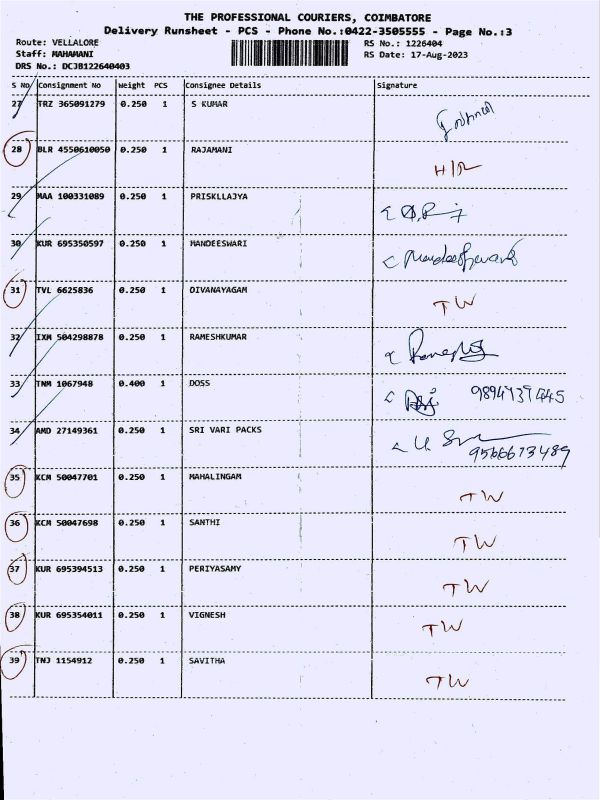 THE PROFESSIONAL COURIERS, COIMBATORE
Delivery Runsheet - PCS - Phone No.:0422-3505555 - Page No.:3
Route: VELLALORE RS No.: 1226404
Staff: MAHAMANI RS Date: 17-Aug-2023
DRS No.: DCJB122640403
S No Consignment No Weight PCS Consignee Details Signature
27 TRZ 365091279 0.250 1 S KUMAR
28 BLR 4550610050 0.250 1 RAJAMANI
29 MAA 100331089 0.250 1 PRISKLLAJYA
30 KUR 695350597 0.250 1 MANDEESWARI
31 TVL 6625836 0.250 1 DIVANAYAGAM TW
32 IXM 504298878 0.250 1 RAMESHKUMAR
33 TNM 1067948 0.400 1 DOSS
34 AMD 27149361 0.250 1 SRI VARI PACKS 9566673489
35 KCM 50047701 0.250 1 MAHALINGAM TW
36 KCM 50047698 0.250 1 SANTHI TW
37 KUR 695394513 0.250 1 PERIYASAMY TW
38 KUR 695354011 0.250 1 VIGNESH TW
39 TNJ 1154912 0.250 1 SAVITHA TW